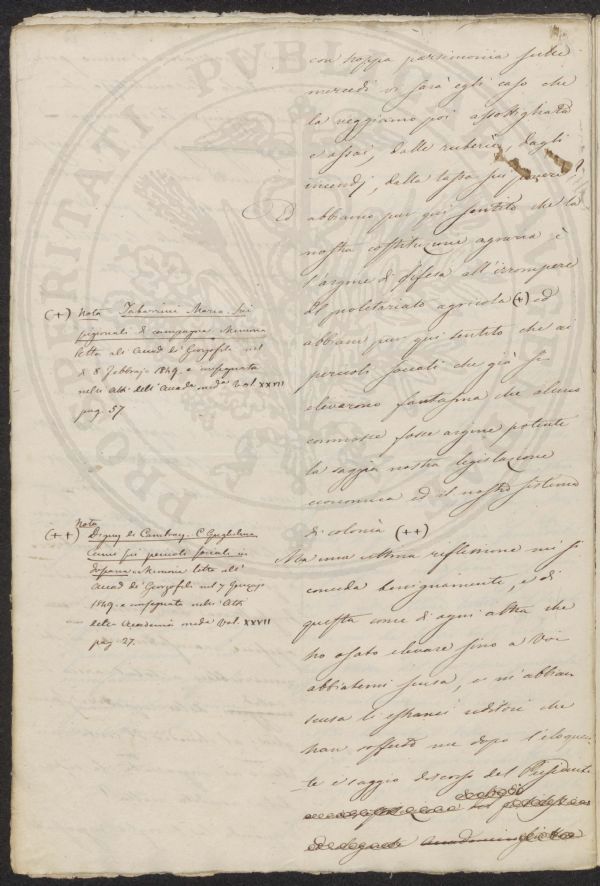 PROSPERITATI PVBLICAE AVGENDAE
con troppa parsimonia sulle
mercedi vi sarà egli caso che
la veggiamo poi assottigliata
e assai, dalle ruberie, dagli
incendj, dalla tassa sui poveri?
Ed abbiamo pur qui sentito che la
nostra costituzione agraria è
l'argine di difesa all'irrompere
del proletariato agricola (+) ed
abbiam pur qui sentito che ai
pericoli sociali che già si
elevarono fantasma che alcuno
commosse fosse argine potente
la saggia nostra legislazione
economica ed il nostro sistema
di colonìa (++)
Ma una ultima riflessione mi si
conceda benignamente, e di
questa come di ogni altra che
ho osato elevare sino a Voi
abbiatemi scusa, e m'abbian
scusa li estranei uditori che
han sofferto me dopo l'eloquen-
te e saggio discorso del
(+) Nota Tabarrini Marco. Sui
pigionali di campagna Memoria
letta all' Accad de' Georgofili nel
8 Febbrajo 1849 e inserita
nelli Atti dell' Accada meda Vol XXVII
pag. 57
(++) Nota
Digny de Cambray. C Guglielmo
Cenni sui pericoli sociali in
Toscana Memoria letta all'
Accad de' Georgofili nel 7 Gen
1849 e inserita nelli Atti
della Accademia meda Vol. XXVII
pag 27.